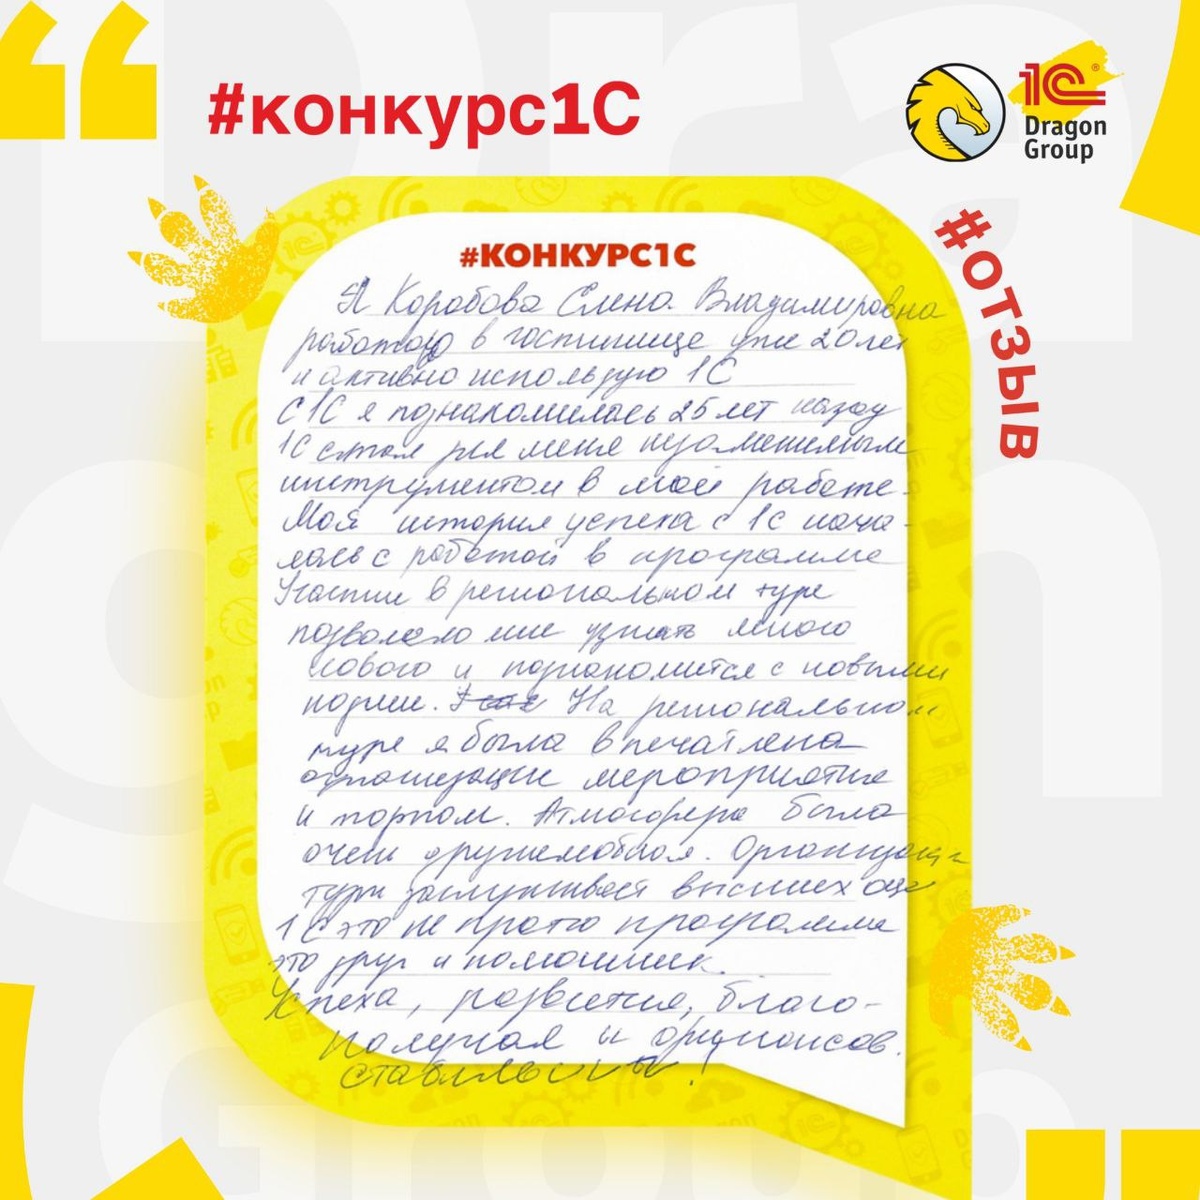 #конкурс1С
1С
Dragon
Group
#отзыв
#КОНКУРС1С
Я Коробова Елена Владимировна
работаю в гостинице уже 20 лет
и активно использую 1С
С 1С я познакомилась 25 лет назад
1С стал для меня незаменимым
инструментом в моей работе.
Моя история успеха с 1С нача-
лась с работой в программе
Участие в региональном туре
позволило мне узнать много
нового и познакомится с новыми
людми. На региональном
туре я была впечатлена
организацие мероприятие
и порто­м. Атмосфера была
очень дружелюбная. Организация
тура заслуживает высших оце
1С это не просто программа
это друг и помошник.
Успеха, развития, благо-
получая и финансов.
стабильности!